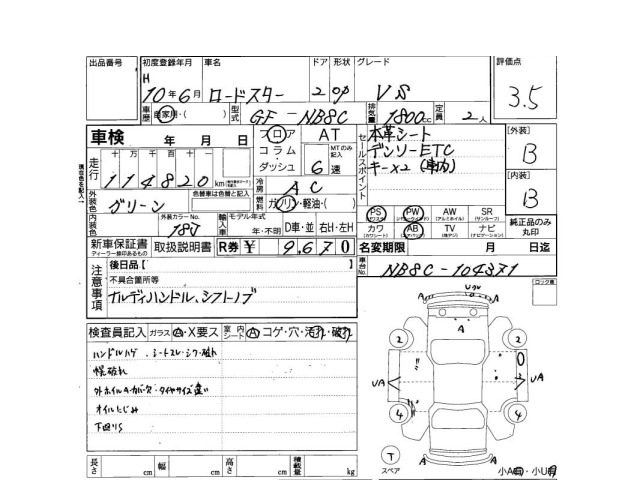 出品番号 初度登録年月 車名 ドア 形状 グレード 評価点
H
10年6月 ロードスター 2 OP VS 3.5
車歴 自家用・( ) 型式 GF-NB8C 排気量 1800cc 定員 2人
車検 年 月 日 フロア AT
コラム MTのみ記入
ダッシュ 6速
走行 十万 万 千 百 十 一
114820km
冷房 AC
燃料 ガソリン・軽油・( )
セールスポイント
本革シート
デンソーETC
キー×2
[外装] B
[内装] B
外装色 グリーン
色替車は色替と記入
内装色
外装カラーNo.
輸入車 モデル年式
年・不明 D車・並 右H・左H
PS PW AW SR
(パワステ) (パワーウインド) (アルミホイル) (サンルーフ)
カワ AB TV ナビ
(カワシート) (エアバック) (純テレビ) (ナビゲーション)
純正品のみ丸印
新車保証書 取扱説明書 R券 ¥ 9,670
ディーラー印のあるもの
名変期限 月 日迄
車台No. NB8C-104371
注意事項
後日品[
不具合箇所等
ナルディハンドル、シフトノブ
ロック車
検査員記入 ガラス A・X要ス 室内 シート A コゲ・穴・汚れ・破れ
ハンドルハゲ、シートスレ・シワ・破れ
幌破れ
外ホイルA・カバー欠・タイヤサイズ違い
オイルにじみ
下回りS
A
2 2
UA UA
4 4
A
A A
T
スペア
小A ・小U
長さ cm 幅 cm 高さ cm 積載量 kg